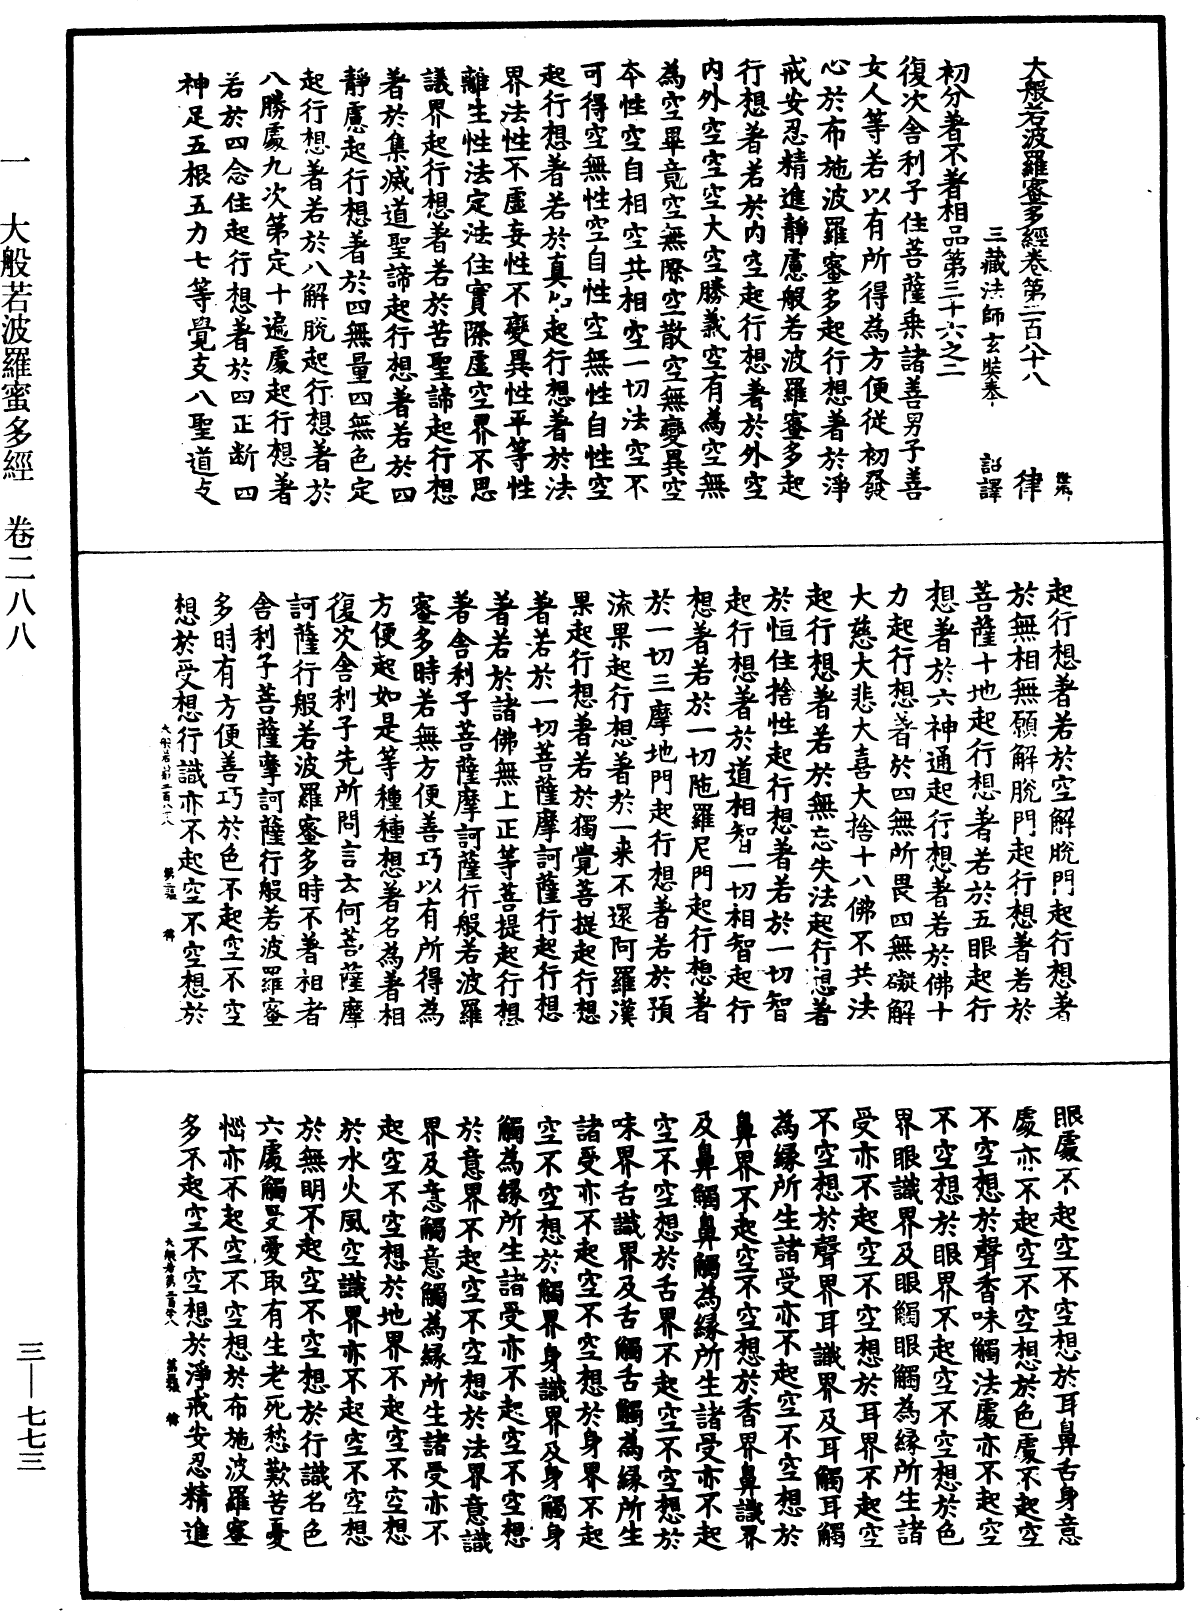 大般若波羅蜜多經卷第二百八十八 律
三藏法師玄奘奉 詔譯
初分著不著相品第三十六之二
復次舍利子住菩薩乘諸善男子善
女人等若以有所得為方便從初發
心於布施波羅蜜多起行想著於淨
戒安忍精進靜慮般若波羅蜜多起
行想著若於內空起行想著於外空
內外空空空大空勝義空有為空無
為空畢竟空無際空散空無變異空
本性空自相空共相空一切法空不
可得空無性空自性空無性自性空
起行想著若於真如起行想著於法
界法性不虛妄性不變異性平等性
離生性法定法住實際虛空界不思
議界起行想著若於苦聖諦起行想
著於集滅道聖諦起行想著若於四
靜慮起行想著於四無量四無色定
起行想著若於八解脫起行想著於
八勝處九次第定十遍處起行想著
若於四念住起行想著於四正斷四
神足五根五力七等覺支八聖道支
起行想著若於空解脫門起行想著
於無相無願解脫門起行想著若於
菩薩十地起行想著若於五眼起行
想著於六神通起行想著若於佛十
力起行想著於四無所畏四無礙解
大慈大悲大喜大捨十八佛不共法
起行想著若於無忘失法起行想著
於恒住捨性起行想著若於一切智
起行想著於道相智一切相智起行
想著若於一切陁羅尼門起行想著
於一切三摩地門起行想著若於預
流果起行想著於一来不還阿羅漢
果起行想著若於獨覺菩提起行想
著若於一切菩薩摩訶薩行起行想
著若於諸佛無上正等菩提起行想
著舍利子菩薩摩訶薩行般若波羅
蜜多時若無方便善巧以有所得為
方便起如是等種種想著名為著相
復次舍利子先所問言云何菩薩摩
訶薩行般若波羅蜜多時不著相者
舍利子菩薩摩訶薩行般若波羅蜜
多時有方便善巧於色不起空不空
想於受想行識亦不起空不空想於
大般若第二百八十八 第二張 律
眼處不起空不空想於耳鼻舌身意
處亦不起空不空想於色處不起空
不空想於聲香味觸法處亦不起空
不空想於眼界不起空不空想於色
界眼識界及眼觸眼觸為緣所生諸
受亦不起空不空想於耳界不起空
不空想於聲界耳識界及耳觸耳觸
為緣所生諸受亦不起空不空想於
鼻界不起空不空想於香界鼻識界
及鼻觸鼻觸為緣所生諸受亦不起
空不空想於舌界不起空不空想於
味界舌識界及舌觸舌觸為緣所生
諸受亦不起空不空想於身界不起
空不空想於觸界身識界及身觸身
觸為緣所生諸受亦不起空不空想
於意界不起空不空想於法界意識
界及意觸意觸為緣所生諸受亦不
起空不空想於地界不起空不空想
於水火風空識界亦不起空不空想
於無明不起空不空想於行識名色
六處觸受愛取有生老死愁歎苦憂
惱亦不起空不空想於布施波羅蜜
多不起空不空想於淨戒安忍精進
大般若第二百八十八 第三張 律
一 大般若波羅蜜多經 卷二八八
三—七七三